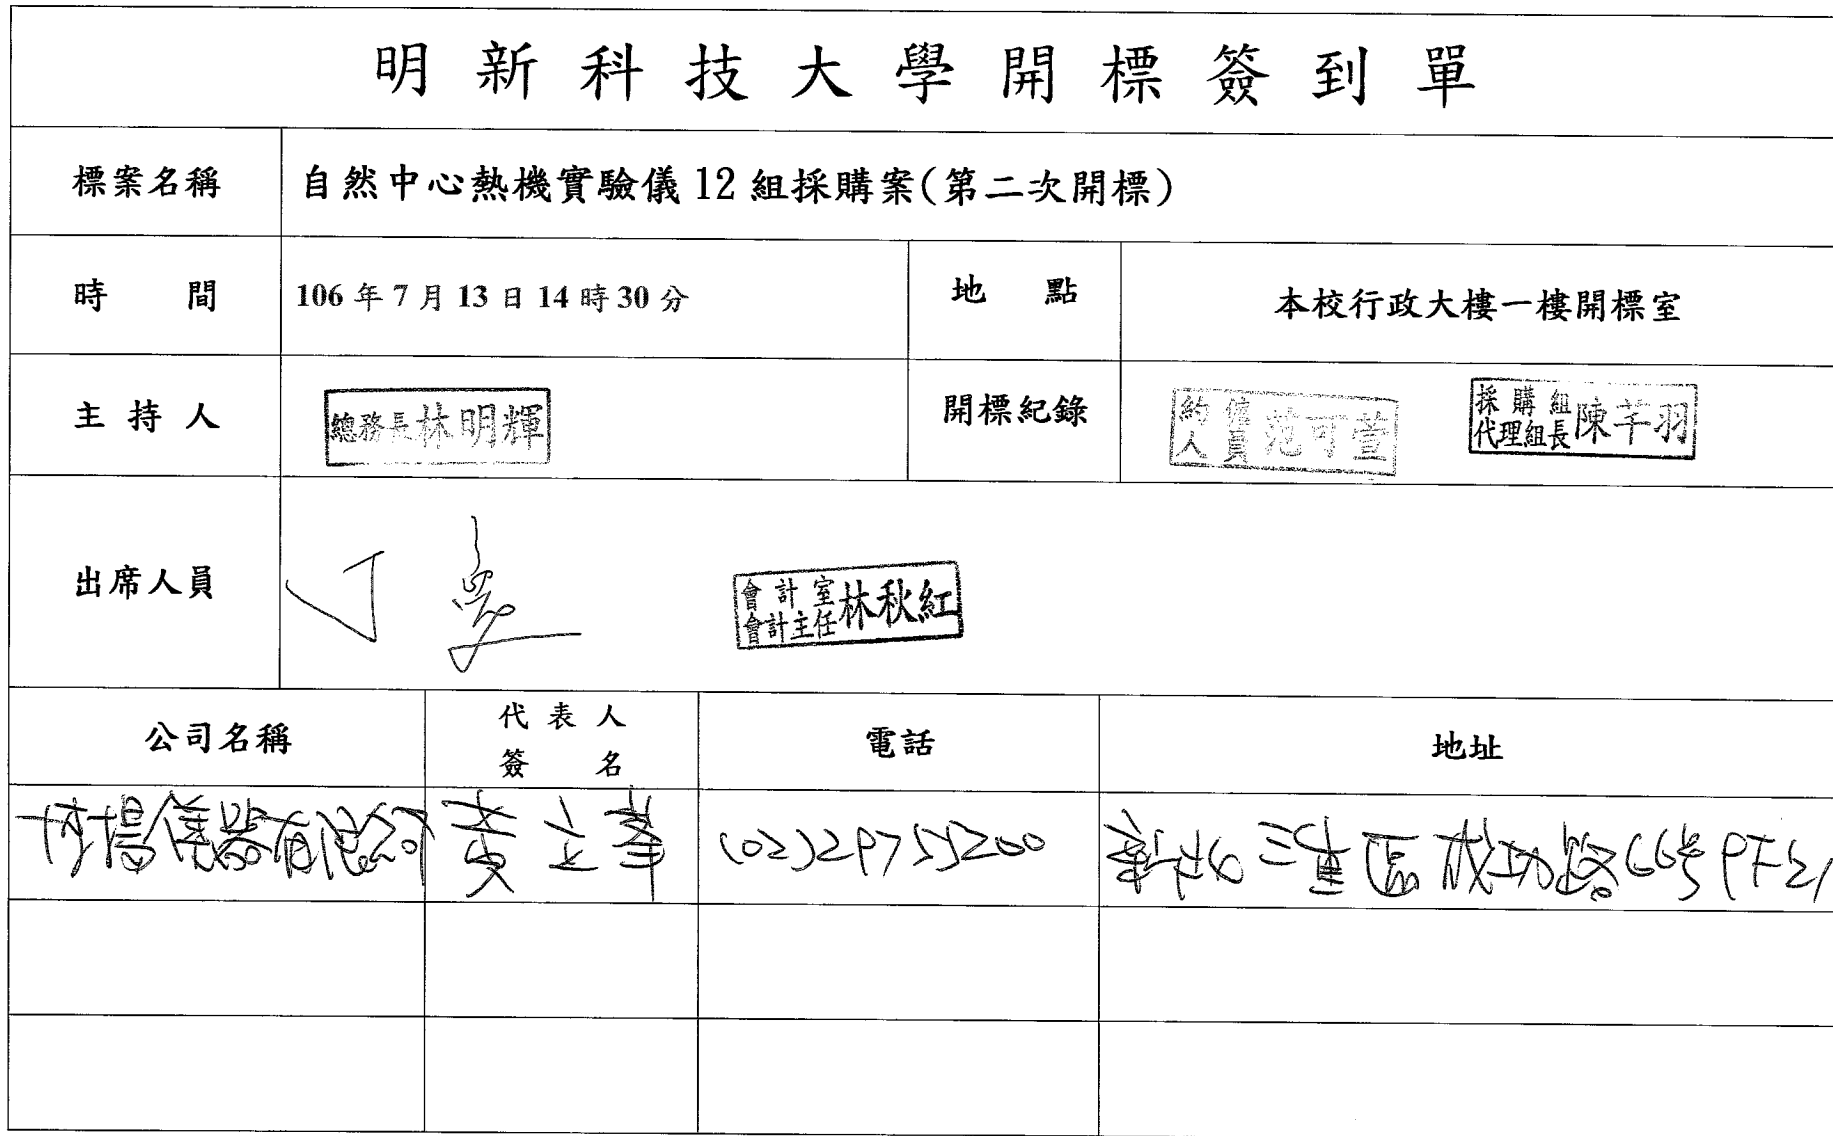 明新科技大學開標簽到單
標案名稱
自然中心熱機實驗儀 12 組採購案(第二次開標)
時 間
106 年 7 月 13 日 14 時 30 分
地 點
本校行政大樓一樓開標室
主 持 人
總務長林明輝
開標紀錄
約僱人員 范可萱
採購組代理組長 陳芊羽
出席人員
丁
會計室會計主任 林秋紅
公司名稱
代 表 人
簽 名
電話
地址
儀器有限公司
黃立峯
(02)29755200
新北三重區成功路66号9F之1